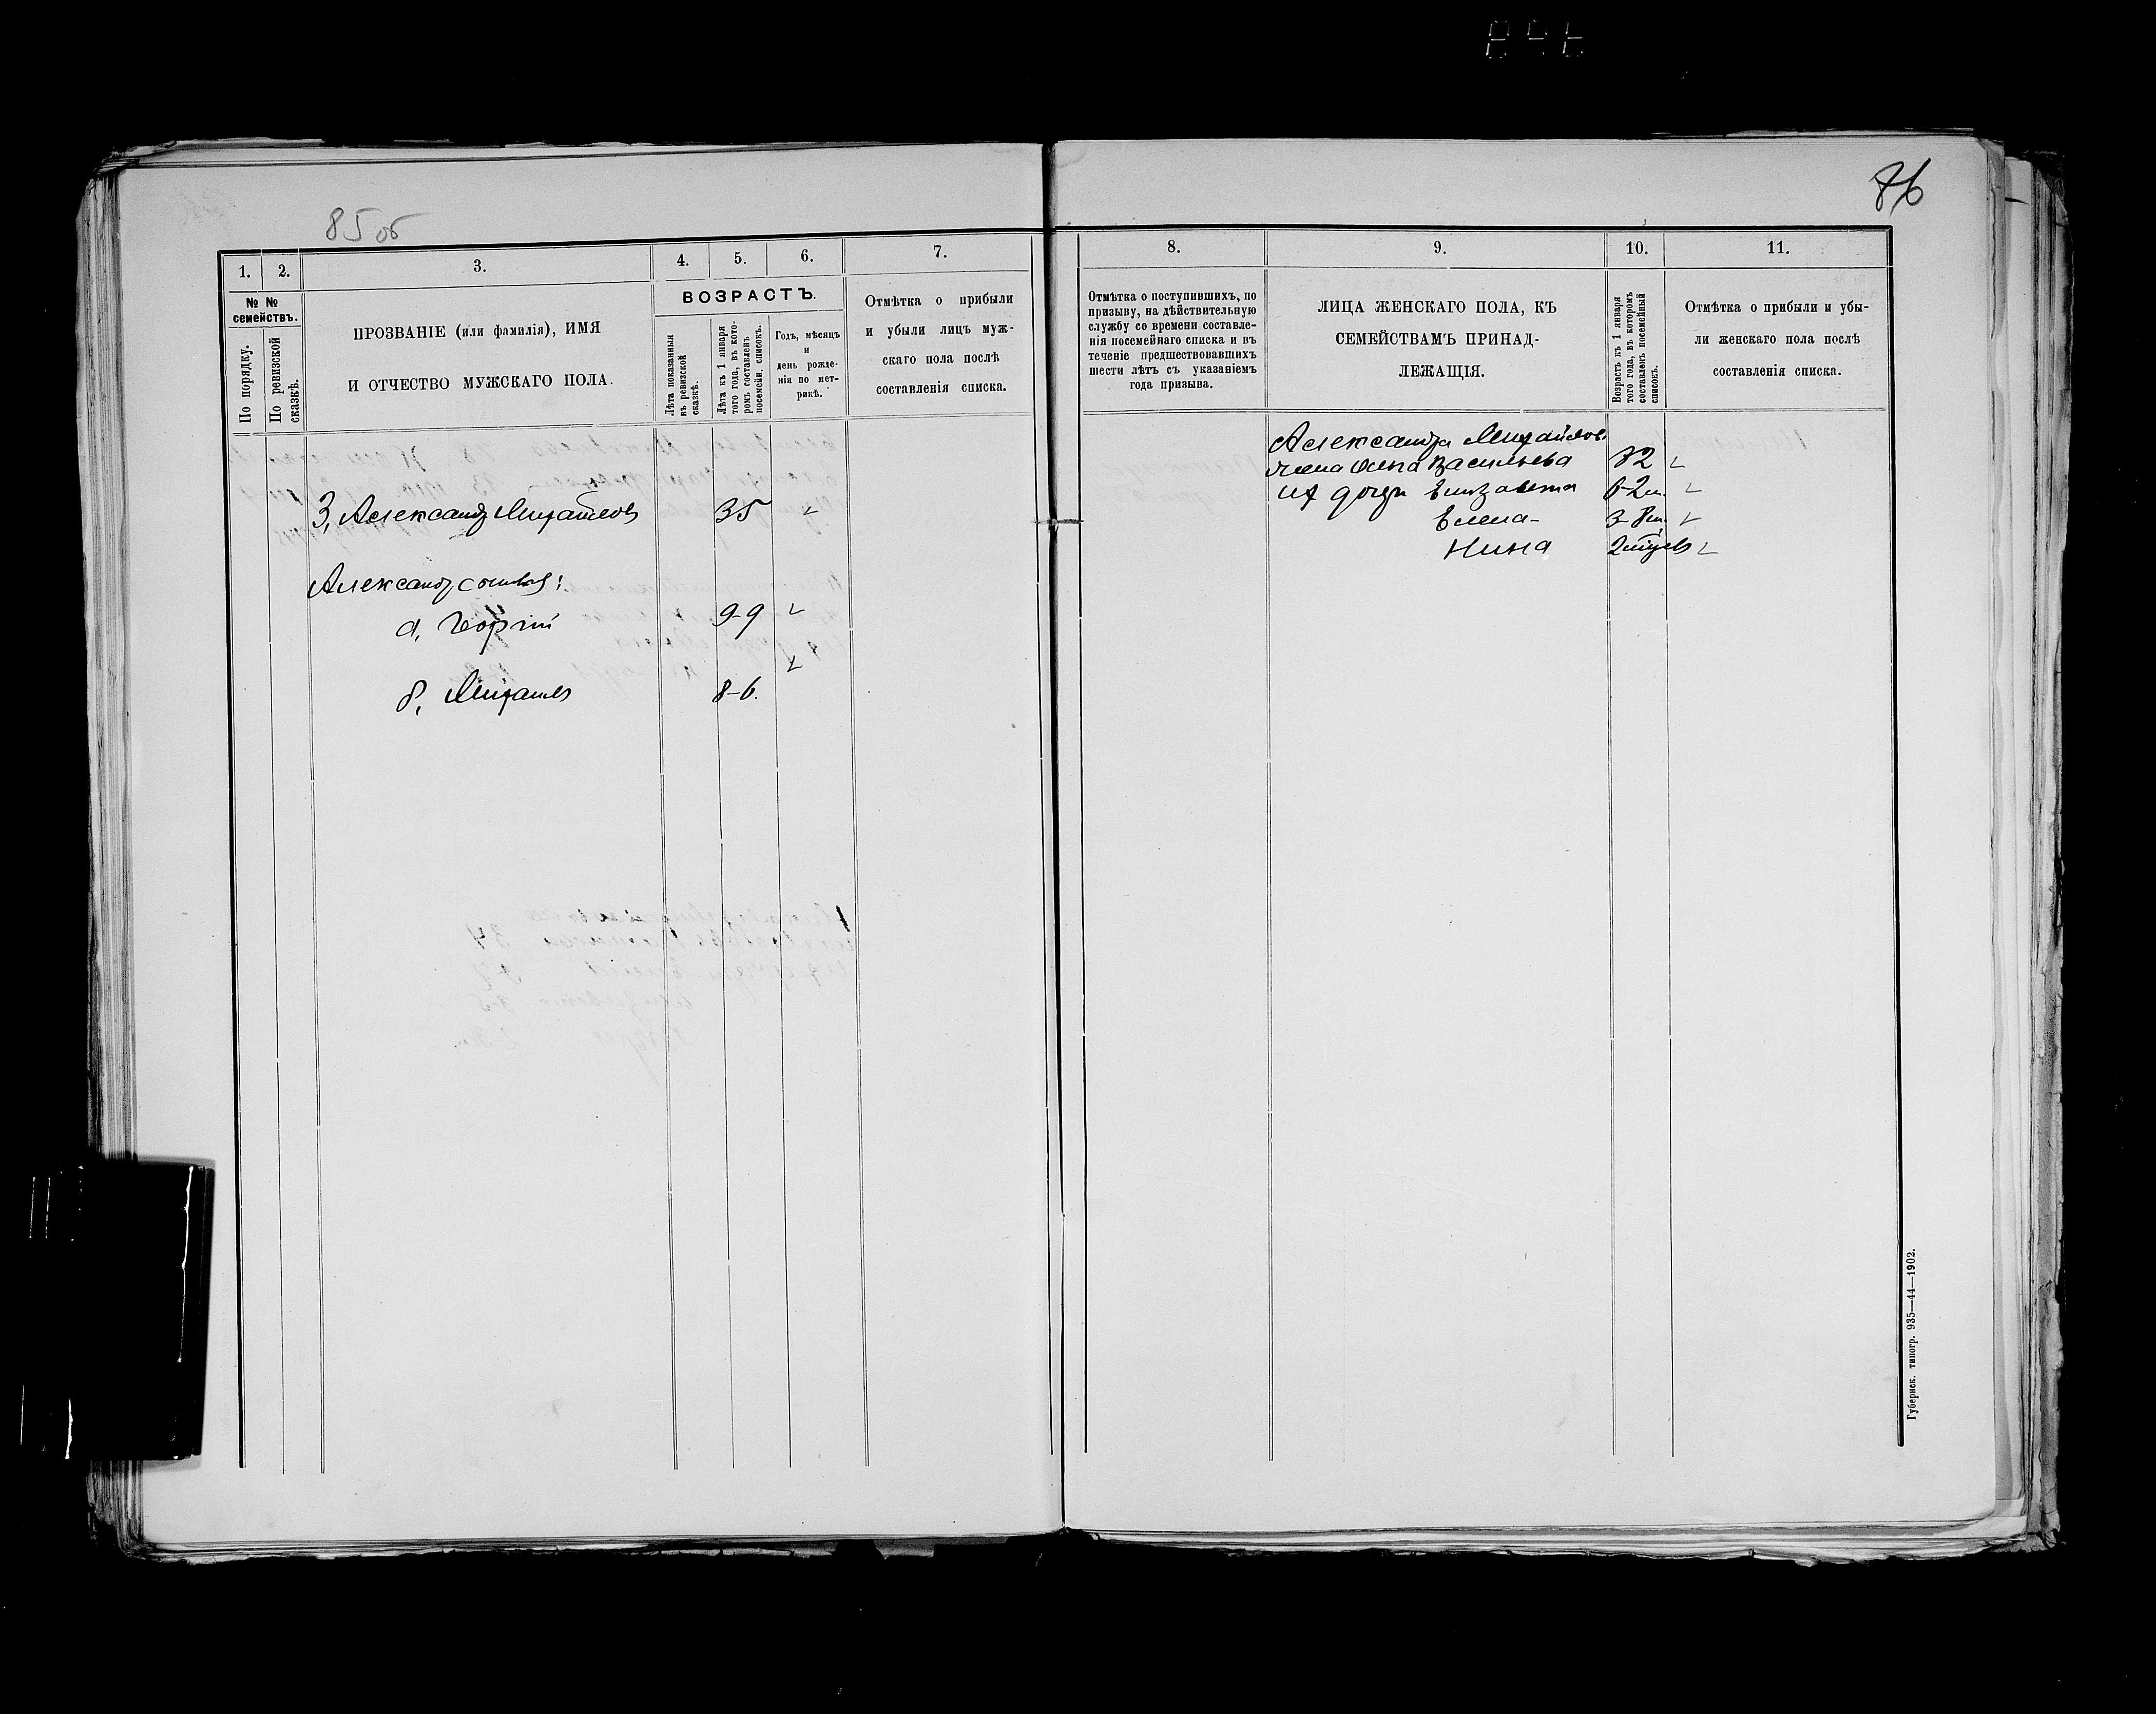 85 об
1.
2.
3.
4.
5.
6.
7.
№ №
семействъ.
По порядку.
По ревизской
сказкѣ.
ПРОЗВАНІЕ (или фамилія), ИМЯ
И ОТЧЕСТВО МУЖСКАГО ПОЛА.
ВОЗРАСТЪ.
Лѣта показанныя
въ ревизской
сказкѣ.
Лѣта къ 1 января
того года, въ кото-
ромъ составленъ
посемейн. списокъ.
Годъ, мѣсяцъ
и
день рожде-
нія по мет-
рикѣ.
Отмѣтка о прибыли
и убыли лицъ муж-
скаго пола послѣ
составленія списка.
3, Александръ Михайловъ 35
Александр сыновья:
а, Георгій 9-9
б, Михаилъ 8-6.
86
8.
9.
10.
11.
Отмѣтка о поступившихъ, по
призыву, на дѣйствительную
службу со времени составле-
нія посемейнаго списка и въ
теченіе предшествовавшихъ
шести лѣтъ съ указаніемъ
года призыва.
ЛИЦА ЖЕНСКАГО ПОЛА, КЪ
СЕМЕЙСТВАМЪ ПРИНАД-
ЛЕЖАЩІЯ.
Возрастъ къ 1 января
того года, въ которомъ
составленъ посемейный
списокъ.
Отмѣтка о прибыли и убы-
ли женскаго пола послѣ
составленія списка.
Александра Михайлов.
жена Анна Васильева 32
их дочери Елизавета 6-2м.
Елена 3-8м.
Нина
Губернск. типогр. 935—44—1902.